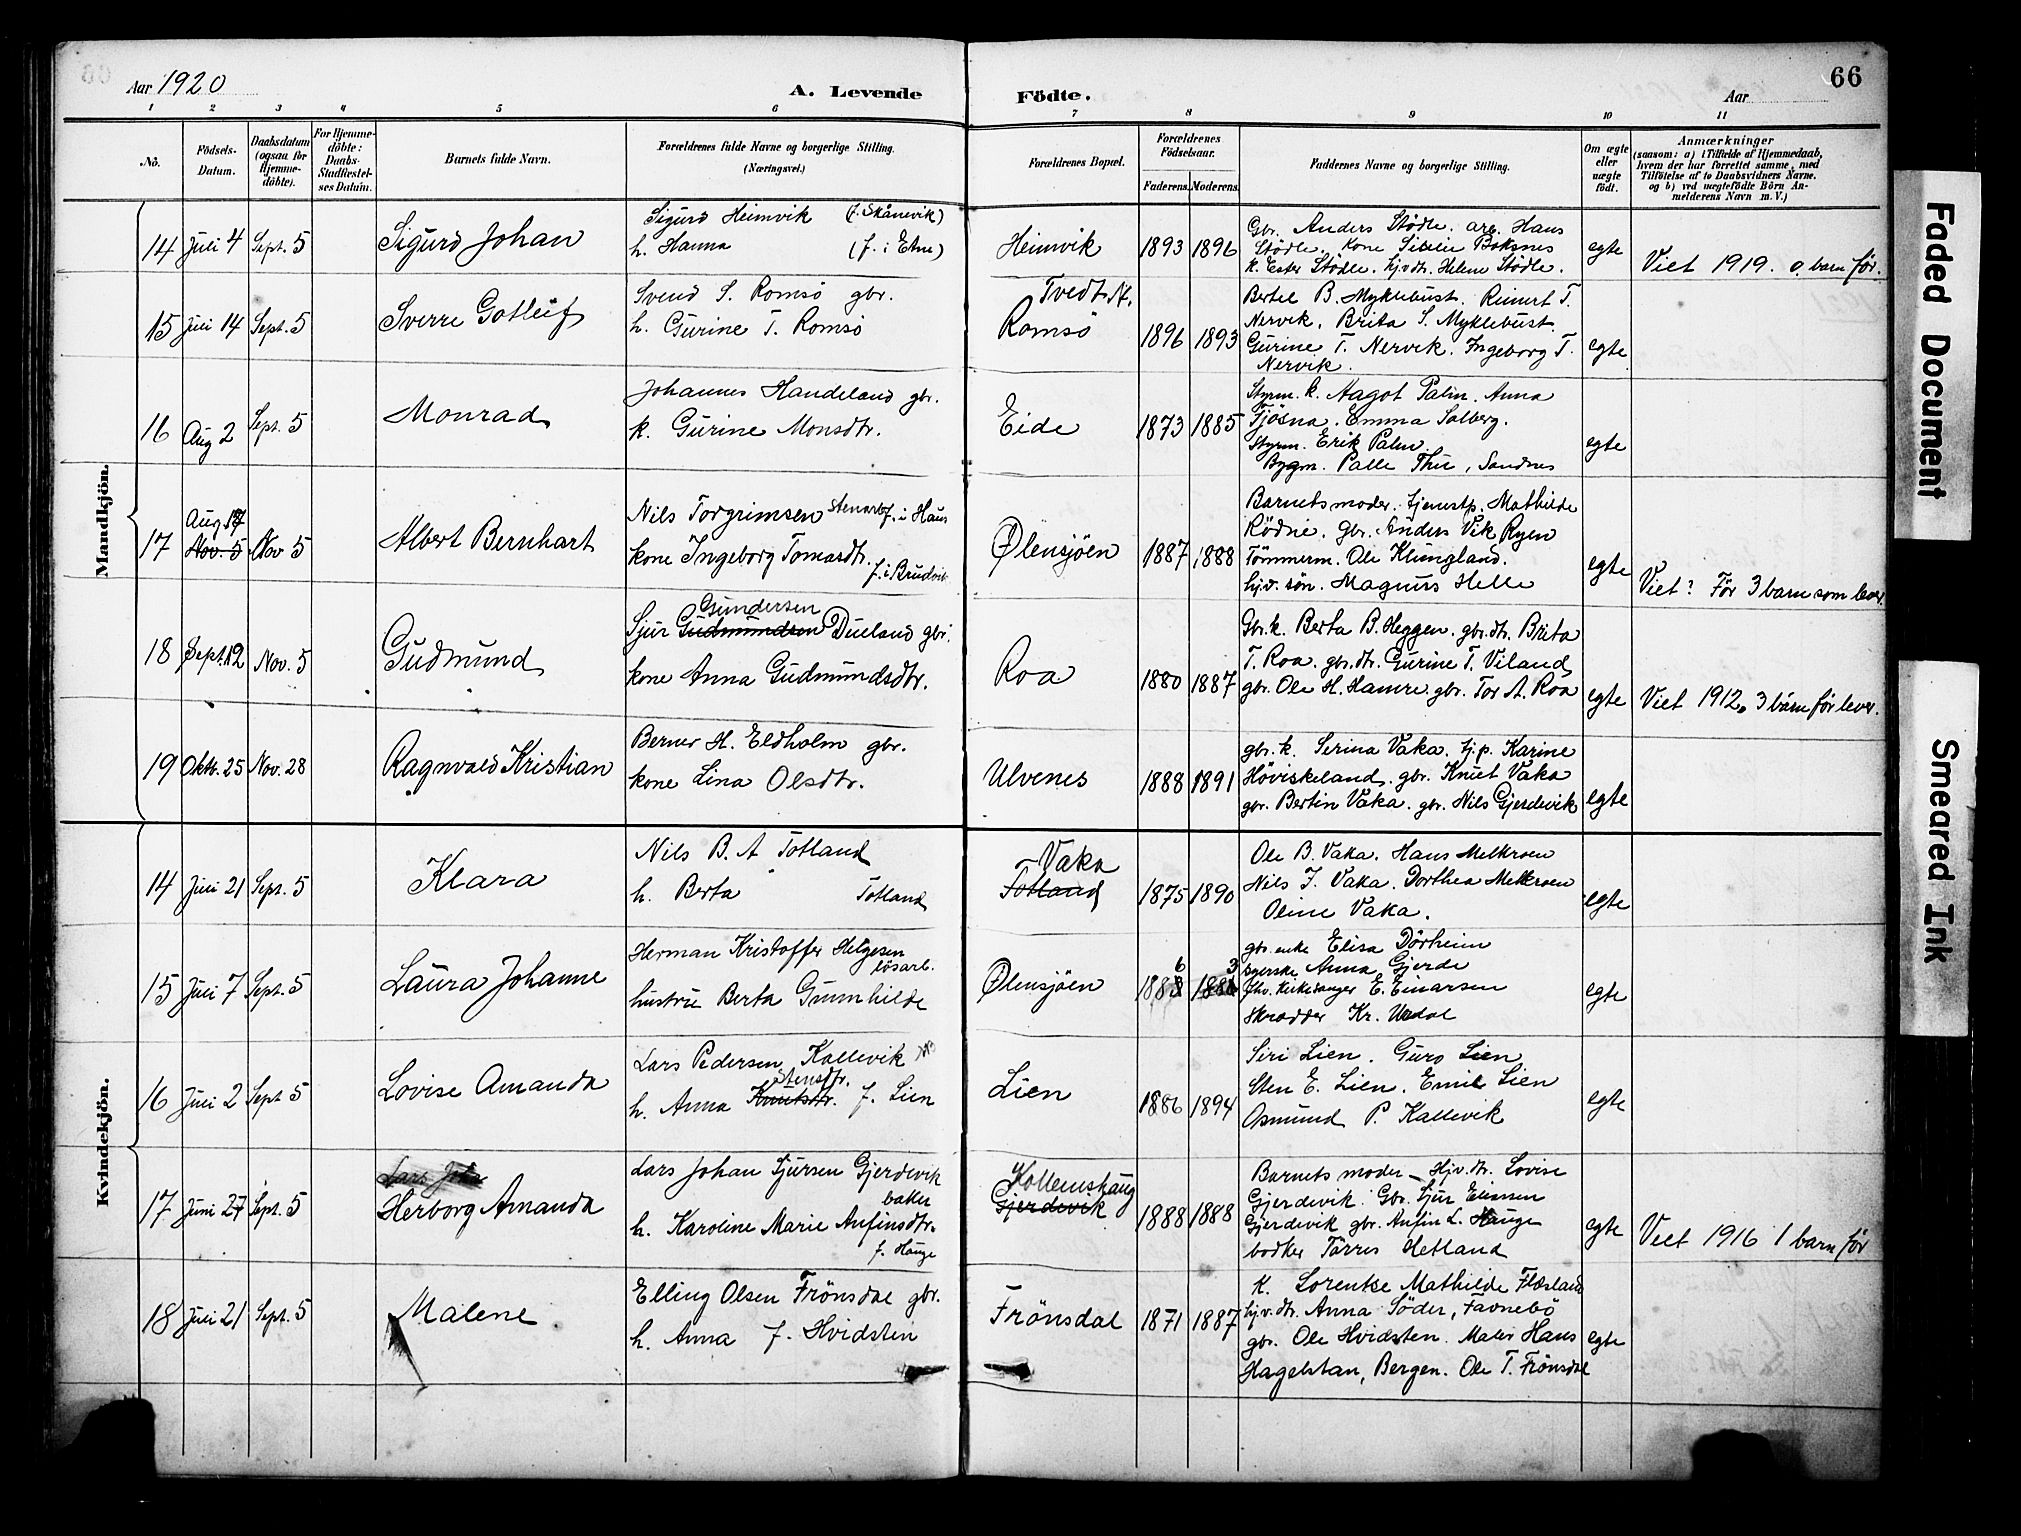 Aar 1920
A. Levende Födte.
Aar
66
1 2 3 4 5 6 7 8 9 10 11
No.
Födsels-Datum.
Daabsdatum (ogsaa for Hjemme-döbte).
For Hjemme-döbte: Daabs-Stadfæstel-ses Datum.
Barnets fulde Navn.
Forældrenes fulde Navne og borgerlige Stilling.
(Næringsvei.)
Forældrenes Bopæl.
Forældrenes Födselsaar.
Faderens. Moderens.
Faddernes Navne og borgerlige Stilling.
Om ægte eller uægte födt.
Anmærkninger
(saasom: a) i Tilfælde af Hjemmedaab, hvem der har forrettet samme, med Tilföielse af to Daabsvidners Navne, og b) ved uægtefödte Börn Anmelderens Navn m. V.)
Mandkjön.
14 Juli 4 Sept. 5 Sigurd Johan
Sigurd Heimvik (f. Skånevik)
h. Hanna (f. i Etne)
Heimvik 1893 1896
Gbr. Anders Stödle. arb. Hans
Stödle. Kone Boksnes
k. Ester Stödle. hjvdtr. Helene Stödle.
egte
Viet 1919. 0 barn før.
15 Juli 14 Sept. 5 Sverre Gotleif
Svend S. Romsö gbr.
h. Gurine T. Romsö
Tvedt, N.
Romsö
1896 1893
Bertel B. Myklebust. Reinert T.
Nervik. Brita S. Myklebust.
Gurine T. Nervik. Ingeborg T.
Nervik.
egte
16 Aug 2 Sept. 5 Monrad
Johannes Handeland gbr.
k. Gurine Monsdtr.
Eide 1873 1885
Styrm. k. Aagot Palm. Anna
Tjösna. Emma Solberg.
Styrm. Erik Palm.
Bygm. Palle Thu, Sandnes
egte
17 Aug 17
Nov. 5 Nov 5 Albert Bernhart
Nils Torgrimsen Stenarb. f. i Haus
kone Ingeborg Tomasdtr.
f. i Bruvik
Ølensjöen 1887 1888
Barnets moder. tjenestp. Mathilde
Rödne. Gbr. Anders Vik Ryen
Tömmerm. Ole Klungland.
hjv. sön. Magnus Helle
egte
Viet? Før 3 barn som lever.
18 Sept. 12 Nov. 5 Gudmund
Gundersen
Sjur Gudmundsen Dueland gbr.
kone Anna Gudmundsdtr.
Roa 1880 1887
Gbr. k. Berta B. Heggen. gbr. dtr. Brita
T. Roa. gbr. dtr. Gurine T. Viland
gbr. Ole H. Hamre. gbr. Tor A. Roa
egte
Viet 1912. 3 barn før lever.
19 Oktb. 25 Nov. 28 Ragnvald Kristian
Berner H. Eldholm gbr.
kone Lina Olsdtr.
Ulvenes 1888 1891
gbr. k. Serina Vaka. tj. p. Karine
Höviskeland. gbr. Knut Vaka
gbr. Bertin Vaka. gbr. Nils Gjerdevik
egte
Kvindekjön.
14 Juli 21 Sept. 5 Klara
Nils B. A Totland
h. Berta Totland
Vaka
Totland
1875 1890
Ole B. Vaka. Hans Melkroen
Nils J. Vaka. Dorthea Melkroen
Oline Vaka.
egte
15 Juli 7 Sept. 5 Laura Johanne
Herman Kristoffer Helgesen
lösarb.
hustru Berta Gunnhilde
Ølensjöen
6 3
188 188
gbr. enke Elisa Dörheim
syerske Anna Gjerde
fhv. Kirkesanger E. Einarsen
skrædder Kr. Undal
egte
16 Juli 2 Sept 5 Lovise Amanda
Lars Pedersen Kallevik
Stensdtr.
h. Anna Knutsdtr. f. Lien
Lien 1886 1894
Siri Lien. Guro Lien
Sten E. Lien. Emil Lien
Osmund P. Kallevik
egte
17 Juni 27 Sept. 5
Lars Joha
Herborg Amanda
Lars Johan Sjursen Gjerdevik
baker
h. Karoline Marie Anfinsdtr.
f. Hauge
Kollemshaug
Gjerdevik
1888 1888
Barnets moder – Hjv. dtr. Lovise
Gjerdevik. Gbr. Sjur
Gjerdevik gbr. Anfin L. Hauge
bødker Törres Hetland
egte
Viet 1916 1 barn før
18 Juli 21 Sept. 5 Malene
Elling Olsen Frönsdal gbr.
h. Anna f. Hvidsten
Frönsdal 1871 1887
K. Lorentse Mathilde Flæsland
hjv. dtr. Anna Söder,
gbr. Ole Hvidsten. Maler Hans
Bergen. Ole T. Frönsdal
egte
Faded Document
Smeared Ink